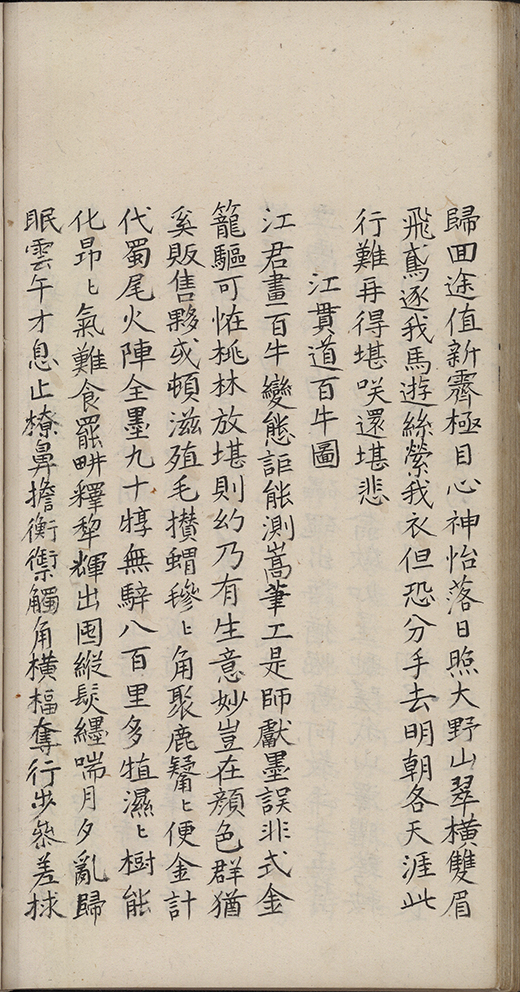 歸囬途值新霽極目心神怡落日照大野山翠橫雙眉
飛鳶逐我馬遊絲縈我衣但恐分手去明朝各天涯此
行難再得堪咲還堪悲
江貫道百牛圖
江君畫百牛變態詎能測嵩筆工是師獻墨誤非式金
籠驅可恠桃林放堪則幻乃有生意妙豈在顔色群猶
奚販售夥或頓滋殖毛攅蝟毿〻角聚鹿觺〻便金計
代蜀尾火陣全墨九十犉無騂八百里多犆濕〻樹能
化昻〻氣難食罷畊釋犂輝出囤縱䯻纆喘月夕亂歸
眠雲午才息止檫鼻擔衡禦觸角橫楅奪行步叅差捄